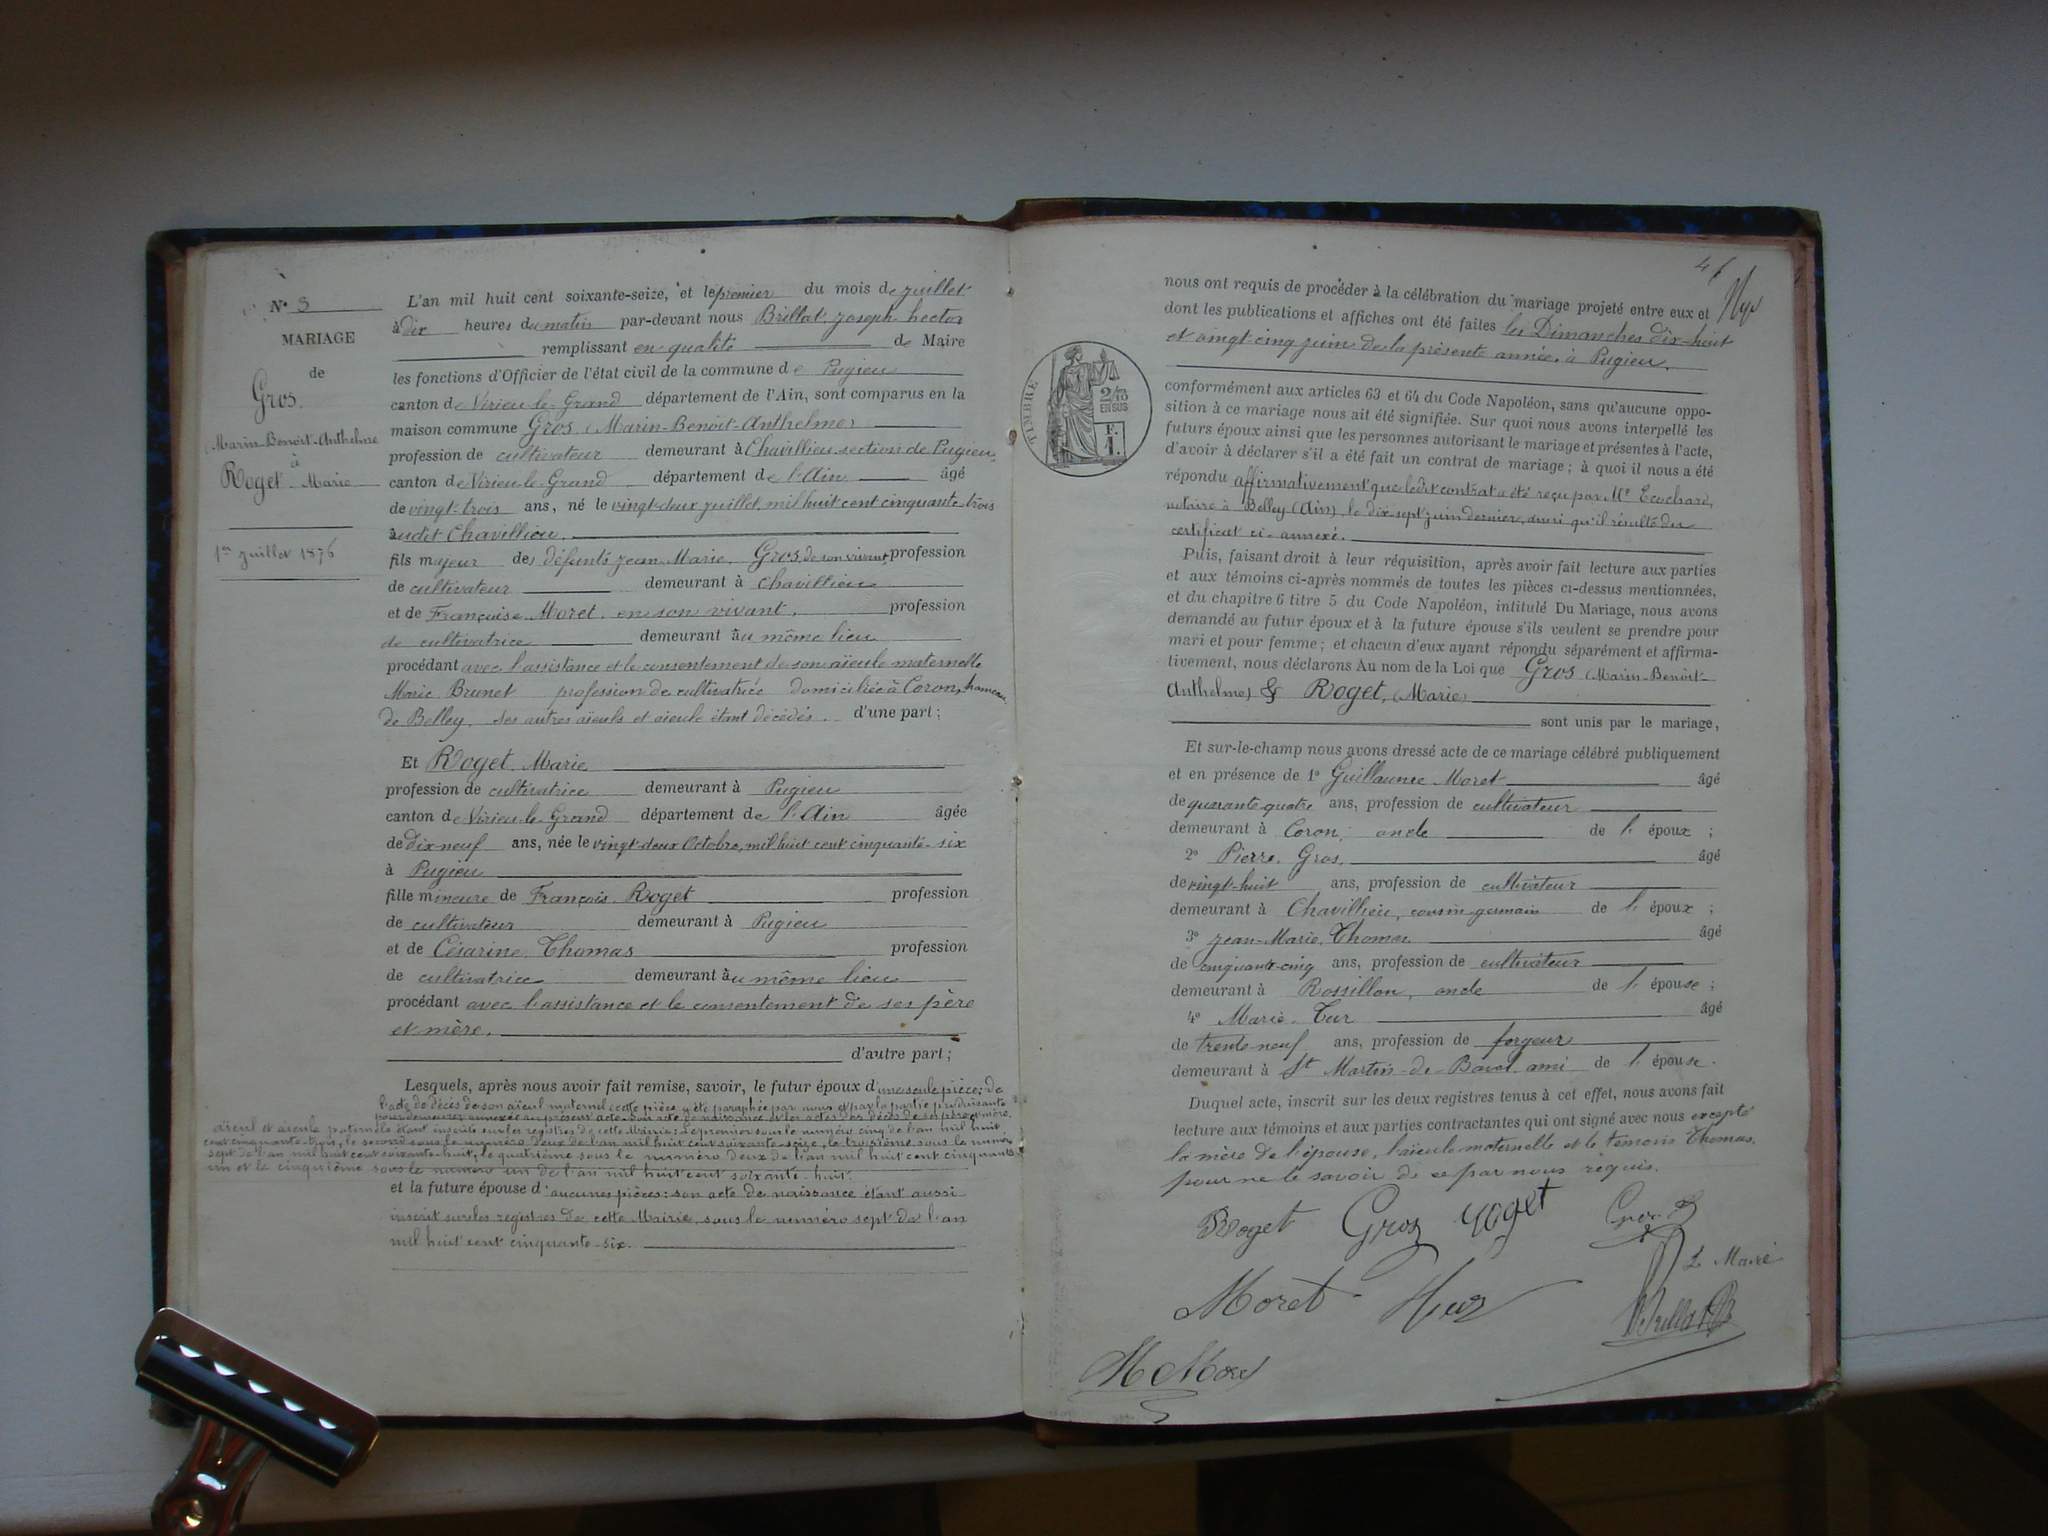 N° 3
MARIAGE
de
Gros
Marin-Benoit-Anthelme
à
Roget Marie
1er Juillet 1876
L'an mil huit cent soixante-seize, et le premier du mois de juillet
à dix heures du matin par-devant nous Brillat, Joseph hector
remplissant en qualité de Maire
les fonctions d'Officier de l'état civil de la commune de Pugieu
canton de Virieu-le-Grand département de l'Ain, sont comparus en la
maison commune Gros (Marin-Benoit-Anthelme)
profession de cultivateur demeurant à Chavillieu section de Pugieu,
canton de Virieu-le-Grand département de l'Ain âgé
de vingt-trois ans, né le vingt-deux juillet, mil huit cent cinquante-trois
audit Chavillieu.
fils majeur de défunts Jean-Marie, Gros, de son vivant, profession
de cultivateur demeurant à Chavillieu
et de Françoise Moret, en son vivant, profession
de cultivatrice demeurant au même lieu
procédant avec l'assistance et le consentement de son aïeule maternelle
Marie Brunet profession de cultivatrice domiciliée à Coron, hameau
de Belley. Ses autres aïeuls et aïeule étant décédés. d'une part;
Et Roget, Marie
profession de cultivatrice demeurant à Pugieu
canton de Virieu-le-Grand département de l'Ain âgée
de dix-neuf ans, née le vingt-deux Octobre, mil huit cent cinquante-six
à Pugieu
fille mineure de François Roget profession
de cultivateur demeurant à Pugieu
et de Césarine Thomas profession
de cultivatrice demeurant au même lieu
procédant avec l'assistance et le consentement de ses père
et mère.
d'autre part;
Lesquels, après nous avoir fait remise, savoir, le futur époux d'une seule pièce: de
l'acte de décès de son aïeul maternel cette pièce a été paraphée par nous et par la partie produisante
pour demeurer annexée au présent acte son acte de naissance et les actes des décès de ses père et mère,
aïeul et aïeule paternels étant inscrits sur les registres de cette Mairie: Le premier sous le numéro cinq de l'an mil huit
cent cinquante-trois, le second sous le numéro deux de l'an mil huit cent soixante-seize, le troisième sous le numéro
sept de l'an mil huit cent soixante-huit, le quatrième sous le numéro deux de l'an mil huit cent cinquante
un et le cinquième sous le numéro un de l'an mil huit cent soixante-huit.
et la future épouse d'aucunes pièces: son acte de naissance étant aussi
inscrit sur les registres de cette Mairie sous le numéro sept de l'an
mil huit cent cinquante-six.
TIMBRE
2/10
EN SUS
F.
1.
nous ont requis de procéder à la célébration du mariage projeté entre eux et
dont les publications et affiches ont été faites les Dimanches dix-huit
et vingt-cinq juin de la présente année, à Pugieu.
conformément aux articles 63 et 64 du Code Napoléon, sans qu'aucune oppo-
sition à ce mariage nous ait été signifiée. Sur quoi nous avons interpellé les
futurs époux ainsi que les personnes autorisant le mariage et présentes à l'acte,
d'avoir à déclarer s'il a été fait un contrat de mariage; à quoi il nous a été
répondu affirmativement que ledit contrat a été reçu par Me Ecochard,
notaire à Belley (Ain), le dix-sept juin dernier, ainsi qu'il résulte du
certificat ci-annexé.
Puis, faisant droit à leur réquisition, après avoir fait lecture aux parties
et aux témoins ci-après nommés de toutes les pièces ci-dessus mentionnées,
et du chapitre 6 titre 5 du Code Napoléon, intitulé Du Mariage, nous avons
demandé au futur époux et à la future épouse s'ils veulent se prendre pour
mari et pour femme; et chacun d'eux ayant répondu séparément et affirma-
tivement, nous déclarons Au nom de la Loi que Gros (Marin-Benoit-
Anthelme) & Roget, (Marie)
sont unis par le mariage,
Et sur-le-champ nous avons dressé acte de ce mariage célébré publiquement
et en présence de 1° Guillaume Moret âgé
de quarante-quatre ans, profession de cultivateur
demeurant à Coron, oncle de l'époux;
2° Pierre, Gros, âgé
de vingt-huit ans, profession de cultivateur
demeurant à Chavillieu, cousin germain de l'époux;
3° Jean-Marie, Thomas âgé
de cinquante-cinq ans, profession de cultivateur
demeurant à Rossillon, oncle de l'épouse;
4° Marie âgé
de trente-neuf ans, profession de forgeur
demeurant à St Martin-de-Bavel ami de l'épouse.
Duquel acte, inscrit sur les deux registres tenus à cet effet, nous avons fait
lecture aux témoins et aux parties contractantes qui ont signé avec nous excepté
la mère de l'épouse, l'aïeule maternelle et le témoin Thomas,
pour ne le savoir de ce par nous requis.
Roget Gros roget Gros
Le Maire
Moret
Brillat